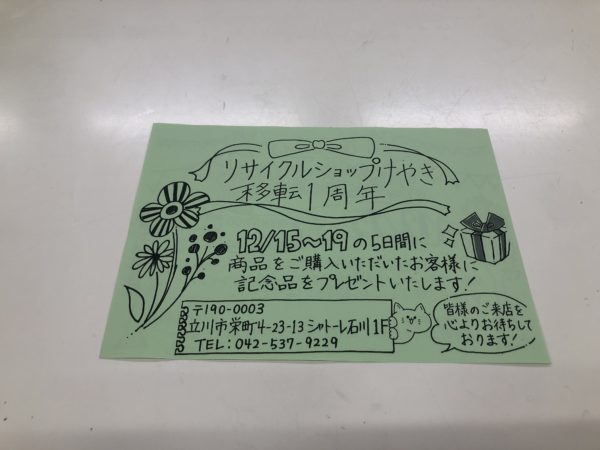 リサイクルショップけやき
移転1周年
12/15～19の5日間に
商品をご購入いただいたお客様に
記念品をプレゼントいたします!
〒190-0003
立川市栄町4-23-13 シャトーレ石川1F
TEL:042-537-9229
皆様のご来店を
心よりお待ちして
おります!